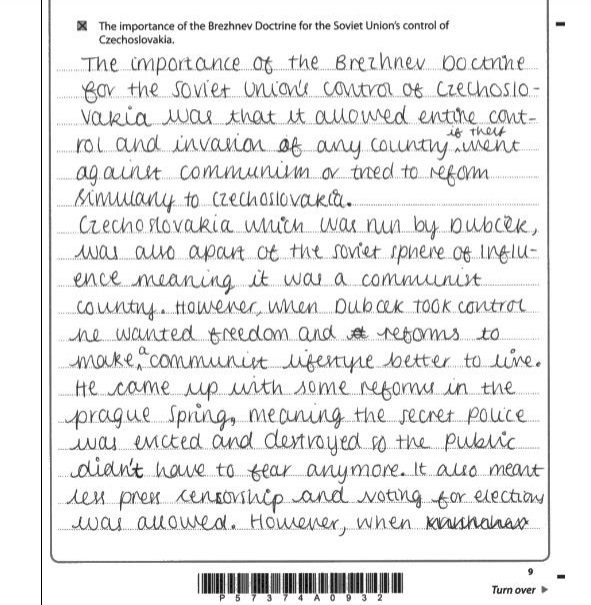 The importance of the Brezhnev Doctrine for the Soviet Union's control of
Czechoslovakia.
The importance of the Brezhnev Doctrine
for the soviet Union's control of Czechoslo-
vakia was that it allowed entire cont-
rol and invasion of any country if they went
against communism or tried to reform
similarly to czechoslovakia.
Czechoslovakia which was run by Dubcek,
was also apart of the soviet sphere of influ-
ence meaning it was a communist
country. However, when Dubcek took control
he wanted freedom and reforms to
make a communist lifestyle better to live.
He came up with some reforms in the
prague spring, meaning the secret police
was and destroyed so the public
didn't have to fear anymore. It also meant
less press censorship and voting for elections
was allowed. However, when
9
P 5 7 3 7 4 A 0 9 3 2
Turn over